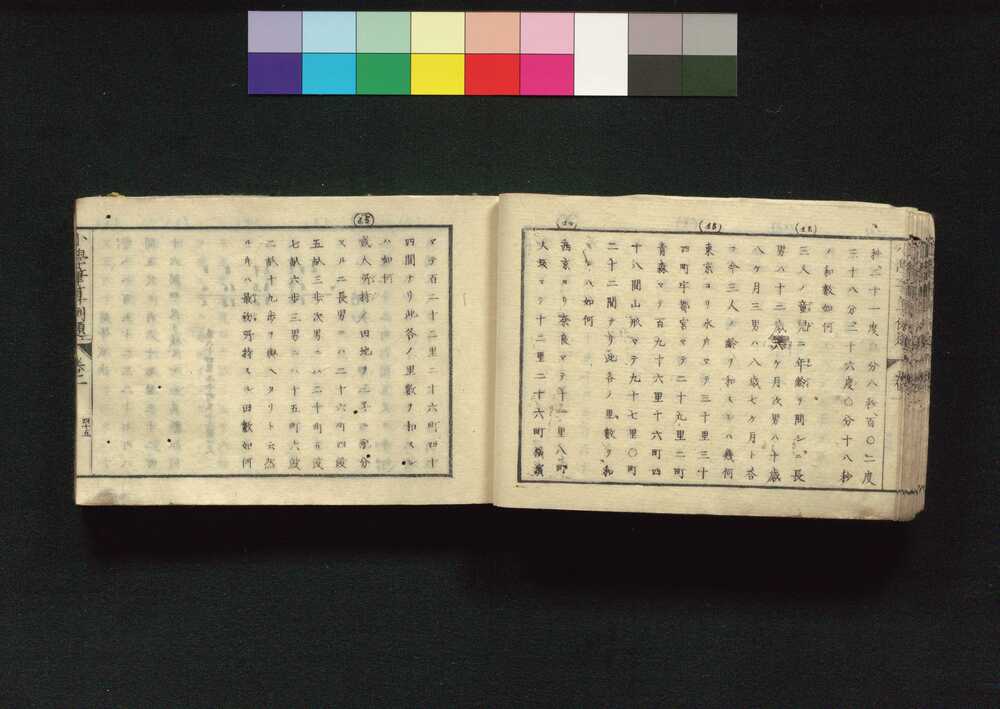 拾三十一度〇二分八秒、百〇二度
三十八分三十六度〇分十八秒
ノ和數如何
三人ノ童兒ニ年齡ヲ問シニ長
男ハ十二歳八ケ月次男ハ十歳
八ケ月三男ハ八歳七ケ月ト答
フ今三人ノ齡ヲ和スレハ幾何
東京ヨリ水戸マテ三十里三十
四町宇都宮マテ二十九里二町
青森マテ百九十六里十六町四
十八間山形マテ九十七里〇町
二十二間ナリ此各ノ里數ヲ和
スレハ如何
西京ヨリ奈良マテ十一里八町
大坂マテ十二里二十六町橫濱
マテ百二十二里二十六町四十
四間ナリ此各ノ里數ヲ和スレ
ハ如何
或人所持ノ田地ヲ三子ニ配分
スルニ長男ニハ二十六町四段
五畝三步次男ニハ二十町五段
七畝六步三男ニハ十五町六段
二畝十九步ヲ與ヘタリト云然
ル片ハ最初所持スル田數如何
小學筆算例題 卷一
四十五